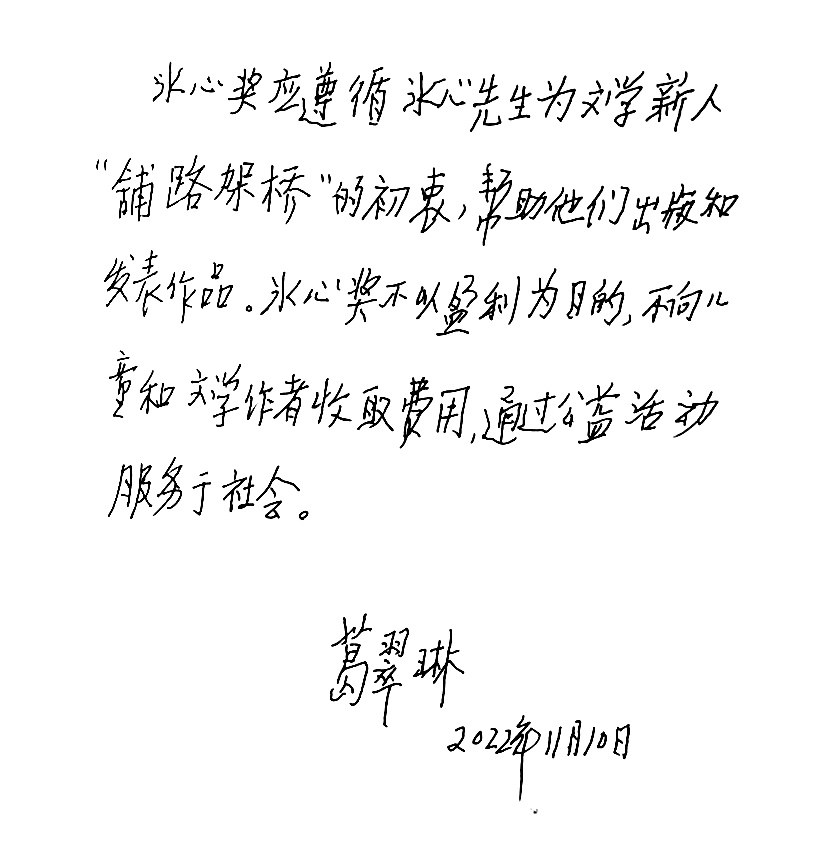 冰心奖应遵循冰心先生为文学新人
“舖路架桥”的初衷,帮助他们出版和
发表作品。冰心奖不以盈利为目的,不向儿
童和文学作者收取费用,通过公益活动
服务于社会。
葛翠琳
2022年11月10日